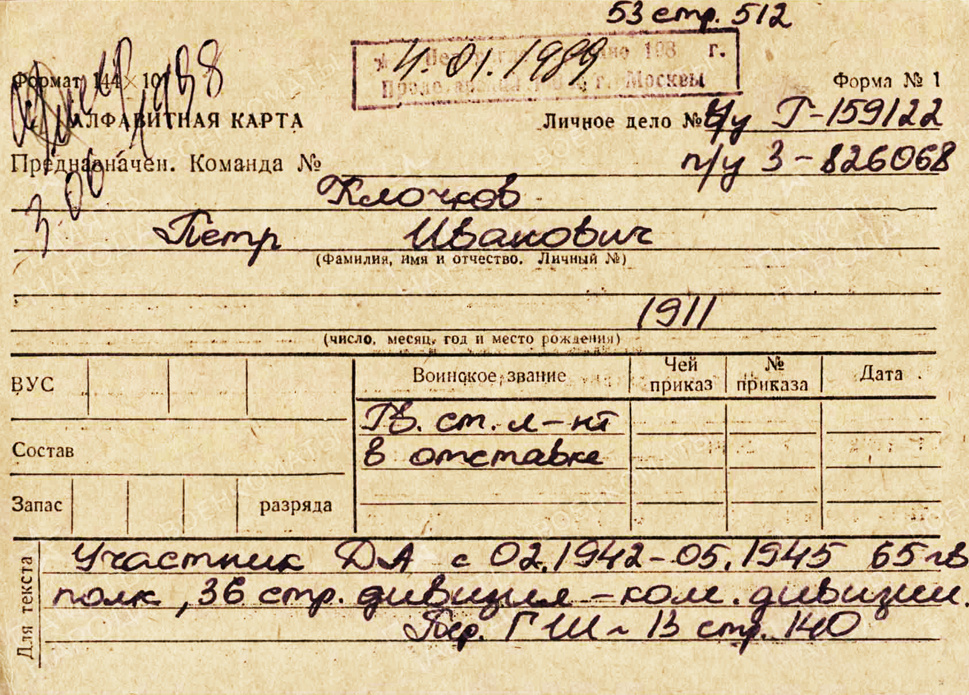 53 стр. 512
4.01.1989 г.
г. Москвы
Формат 144×10
Форма № 1
АЛФАВИТНАЯ КАРТА
Личное дело № У/у Г-159122
Предназначен. Команда №
п/у З-826068
Клочков
Петр Иванович
(Фамилия, имя и отчество. Личный №)
1911
(число, месяц, год и место рождения)
ВУС
Воинское звание
Чей приказ
№ приказа
Дата
Гв. ст. л-нт
в отставке
Состав
Запас
разряда
Для текста
Участник ДА с 02.1942-05.1945 65 гв
полк, 36 стр. дивизия - ком. дивизии.
Пер. ГШ - 13 стр. 140